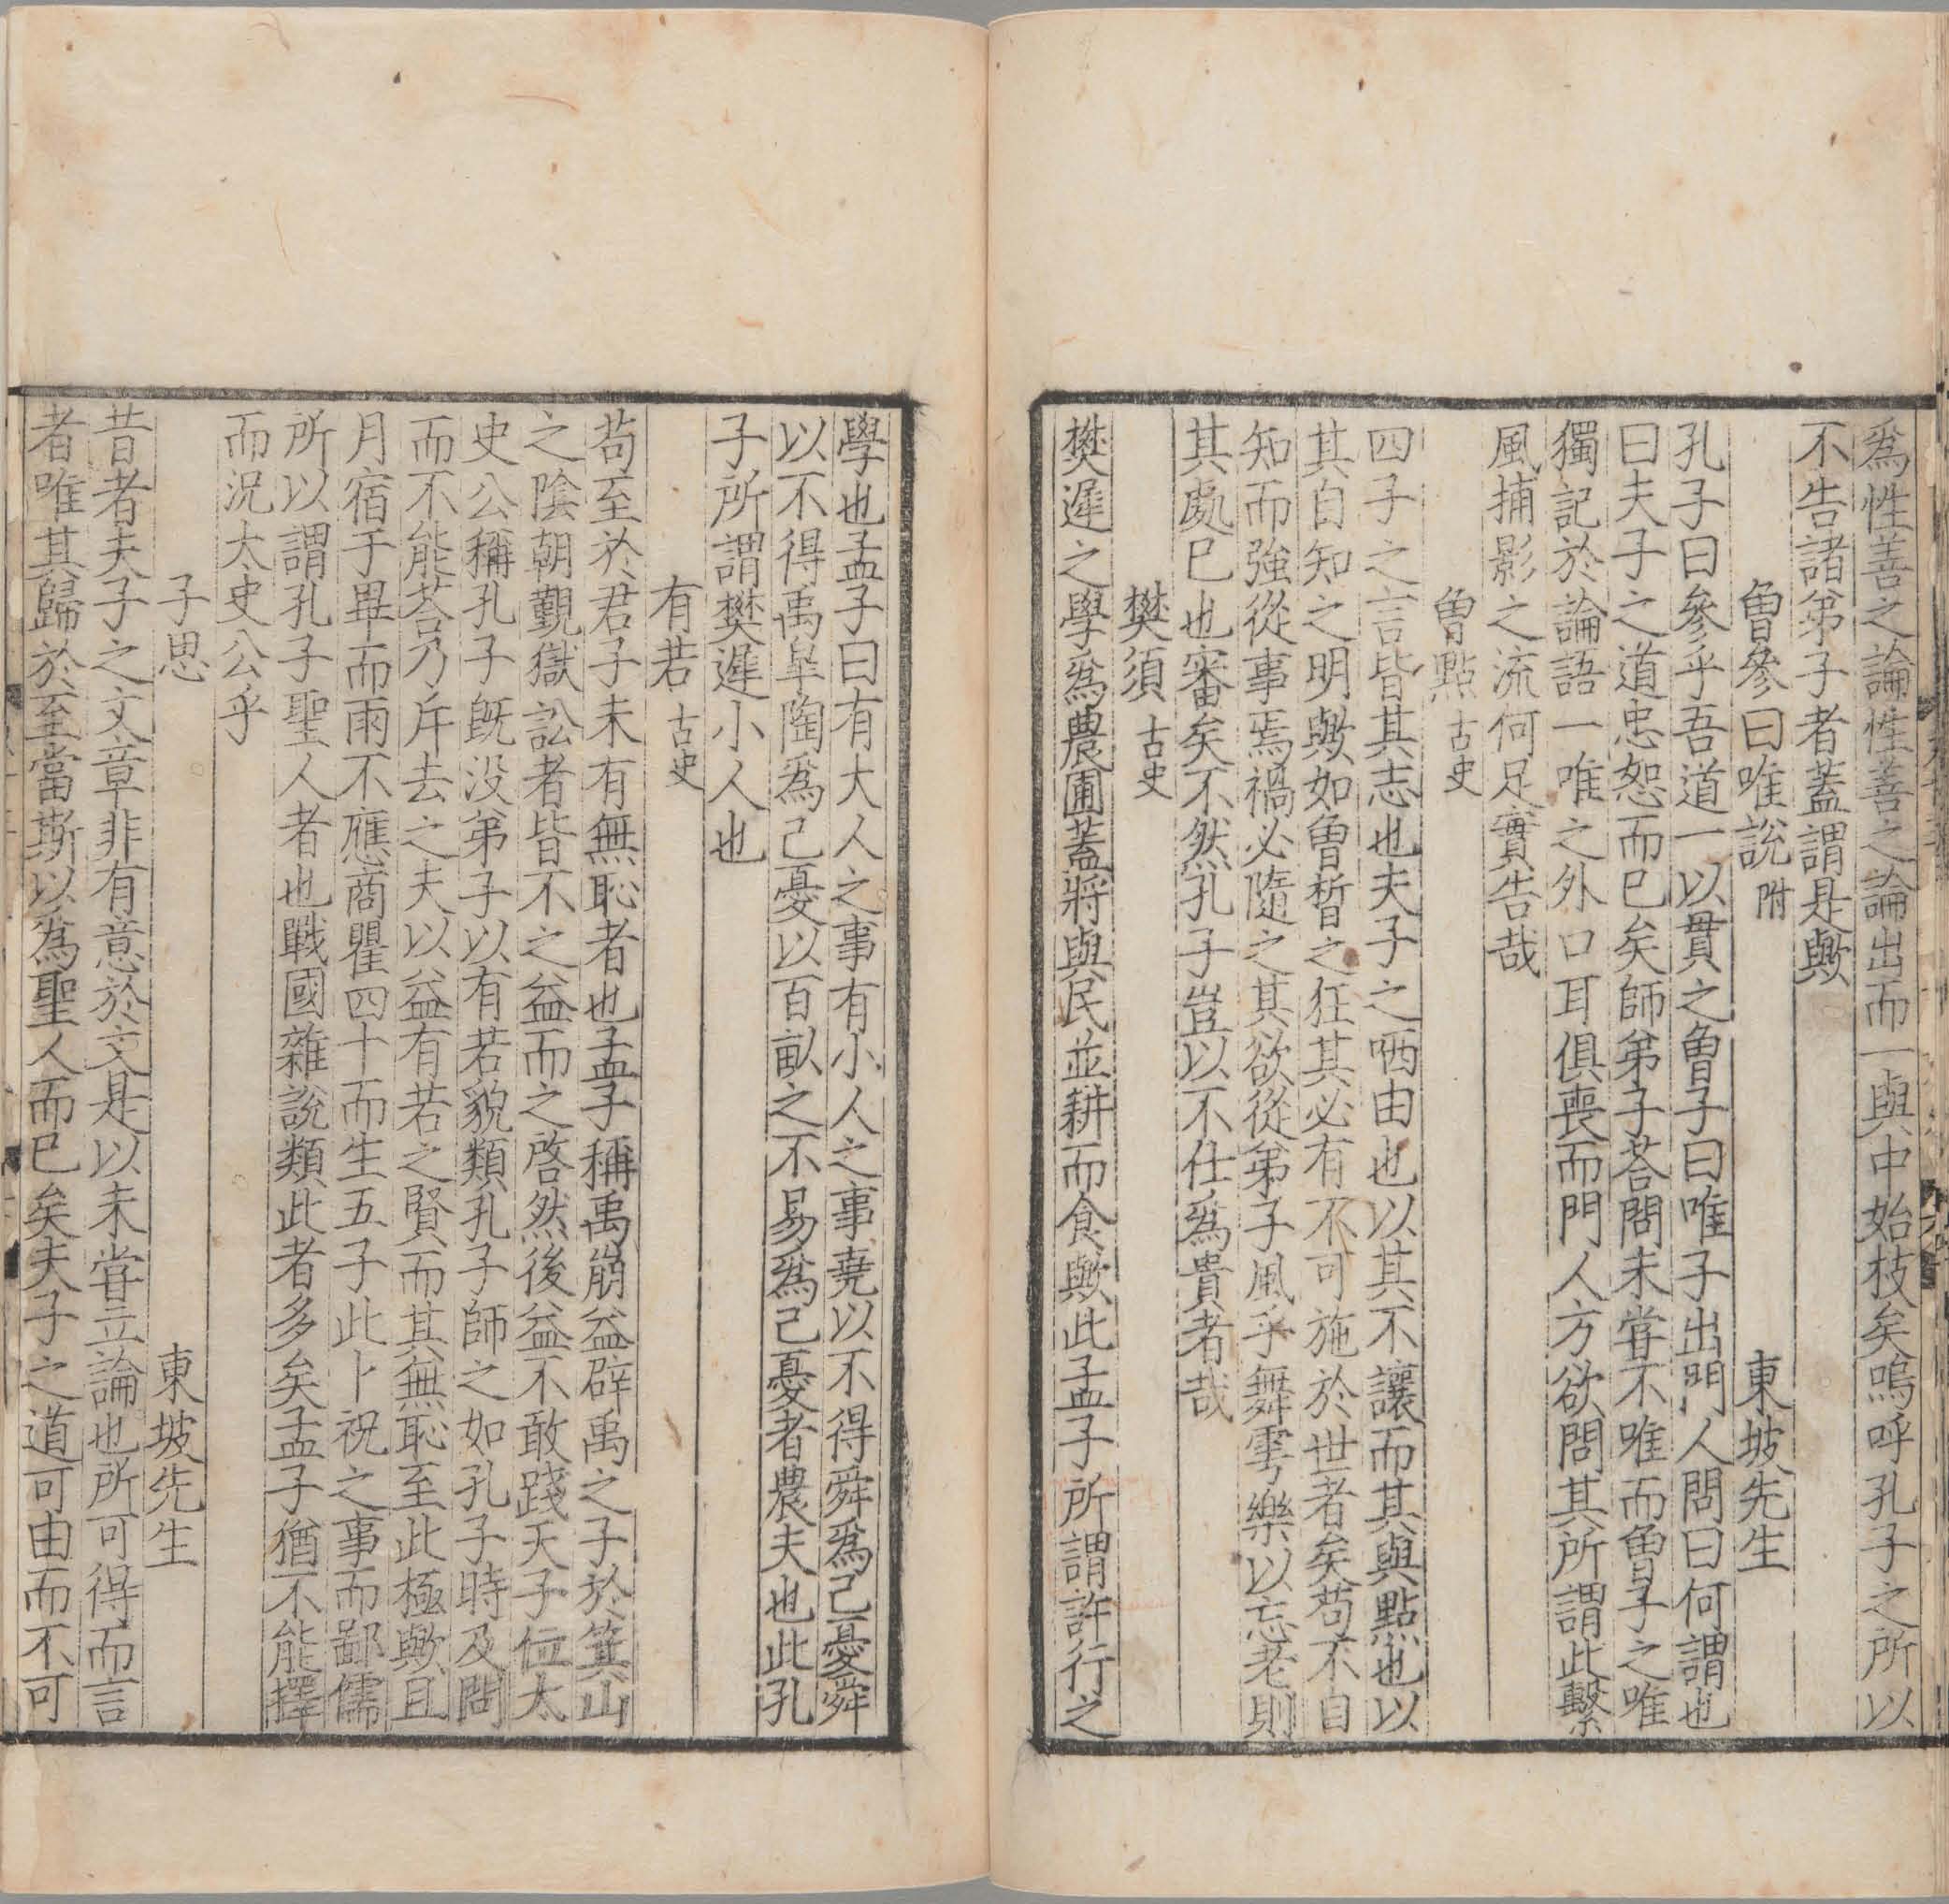 爲性善之論性善之論出而一與中始枝矣嗚呼孔子之所以
不告諸弟子者蓋謂是歟
曾參曰唯說 附 東坡先生
孔子曰參乎吾道一以貫之曾子曰唯子出門人問曰何謂也
曰夫子之道忠恕而已矣師弟子荅問未甞不唯而曾子之唯
獨記於論語一唯之外口耳俱喪而門人方欲問其所謂此繫
風捕影之流何足實告哉
曾點 古史
四子之言皆其志也夫子之哂由也以其不讓而其與點也以
其自知之明歟如曾晳之狂其必有不可施於世者矣苟不自
知而強從事焉禍必隨之其欲從弟子風乎舞雩樂以忘老則
其處已也審矣不然孔子豈以不仕爲貴者哉
樊須 古史
樊遲之學爲農圃蓋將與民並耕而食歟此孟子所謂許行之
學也孟子曰有大人之事有小人之事堯以不得舜爲己憂舜
以不得禹皐陶爲己憂以百畝之不易爲己憂者農夫也此孔
子所謂樊遲小人也
有若 古史
苟至於君子未有無恥者也孟子稱禹崩益辟禹之子於箕山
之陰朝覲獄訟者皆不之益而之啓然後益不敢踐天子位太
史公稱孔子旣没弟子以有若貌類孔子師之如孔子時及問
而不能荅乃斥去之夫以益有若之賢而其無恥至此極歟且
月宿于畢而雨不應商瞿四十而生五子此卜祝之事而鄙儒
所以謂孔子聖人者也戰國雜說類此者多矣孟子猶不能擇
而況太史公乎
子思 東坡先生
昔者夫子之文章非有意於文是以未甞立論也所可得而言
者唯其歸於至當斯以爲聖人而已矣夫子之道可由而不可